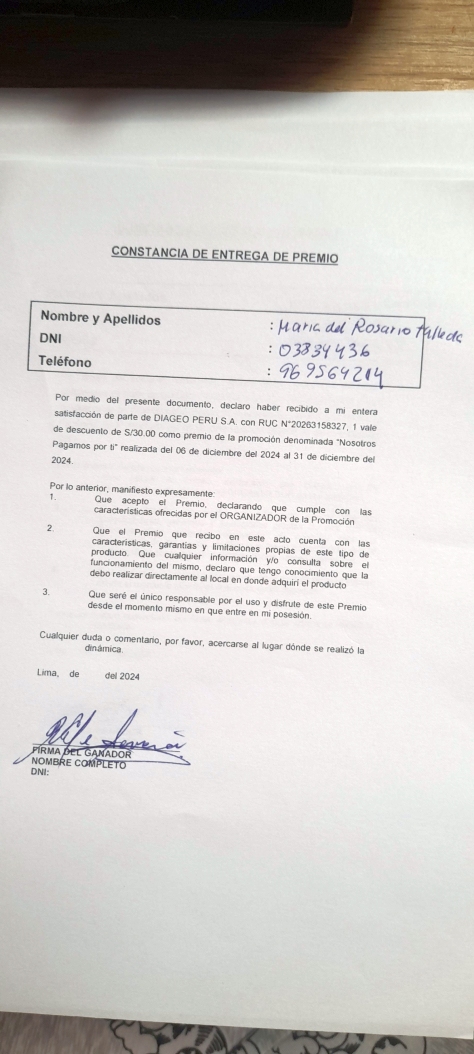 CONSTANCIA DE ENTREGA DE PREMIO
Nombre y Apellidos : Maria del Rosario
DNI : 03834436
Teléfono : 969564214
Por medio del presente documento, declaro haber recibido a mi entera
satisfacción de parte de DIAGEO PERU S.A. con RUC N°20263158327, 1 vale
de descuento de S/30.00 como premio de la promoción denominada "Nosotros
Pagamos por ti" realizada del 06 de diciembre del 2024 al 31 de diciembre del
2024.
Por lo anterior, manifiesto expresamente:
1. Que acepto el Premio, declarando que cumple con las
características ofrecidas por el ORGANIZADOR de la Promoción
2. Que el Premio que recibo en este acto cuenta con las
características, garantías y limitaciones propias de este tipo de
producto. Que cualquier información y/o consulta sobre el
funcionamiento del mismo, declaro que tengo conocimiento que la
debo realizar directamente al local en donde adquirí el producto
3. Que seré el único responsable por el uso y disfrute de este Premio
desde el momento mismo en que entre en mi posesión.
Cualquier duda o comentario, por favor, acercarse al lugar dónde se realizó la
dinámica.
Lima, de del 2024
FIRMA DEL GANADOR
NOMBRE COMPLETO
DNI: